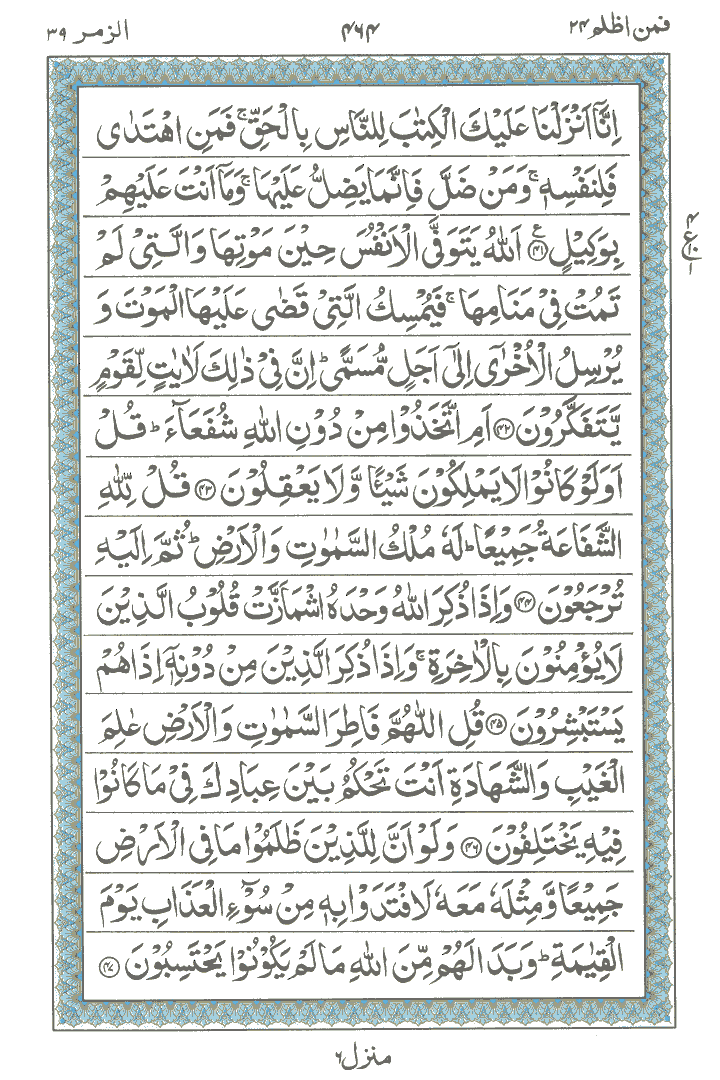 فمن اظلم ٢٤
٤٦٤
الزمر ٣٩
اِنَّاۤ اَنْزَلْنَا عَلَيْكَ الْكِتٰبَ لِلنَّاسِ بِالْحَقِّ ۚ فَمَنِ اهْتَدٰى
فَلِنَفْسِهٖ ۚ وَمَنْ ضَلَّ فَاِنَّمَا يَضِلُّ عَلَيْهَا ۚ وَمَاۤ اَنْتَ عَلَيْهِمْ
بِوَكِيْلٍ ﴿٤١﴾ اَللّٰهُ يَتَوَفَّى الْاَنْفُسَ حِيْنَ مَوْتِهَا وَالَّتِىْ لَمْ
تَمُتْ فِىْ مَنَامِهَا ۚ فَيُمْسِكُ الَّتِىْ قَضٰى عَلَيْهَا الْمَوْتَ وَ
يُرْسِلُ الْاُخْرٰٓى اِلٰٓى اَجَلٍ مُّسَمًّى ؕ اِنَّ فِىْ ذٰلِكَ لَاٰيٰتٍ لِّقَوْمٍ
يَّتَفَكَّرُوْنَ ﴿٤٢﴾ اَمِ اتَّخَذُوْا مِنْ دُوْنِ اللّٰهِ شُفَعَآءَ ؕ قُلْ
اَوَلَوْ كَانُوْا لَا يَمْلِكُوْنَ شَيْـًٔا وَّلَا يَعْقِلُوْنَ ﴿٤٣﴾ قُلْ لِّلّٰهِ
الشَّفَاعَةُ جَمِيْعًا ؕ لَهٗ مُلْكُ السَّمٰوٰتِ وَالْاَرْضِ ؕ ثُمَّ اِلَيْهِ
تُرْجَعُوْنَ ﴿٤٤﴾ وَاِذَا ذُكِرَ اللّٰهُ وَحْدَهُ اشْمَاَزَّتْ قُلُوْبُ الَّذِيْنَ
لَا يُؤْمِنُوْنَ بِالْاٰخِرَةِ ۚ وَاِذَا ذُكِرَ الَّذِيْنَ مِنْ دُوْنِهٖۤ اِذَا هُمْ
يَسْتَبْشِرُوْنَ ﴿٤٥﴾ قُلِ اللّٰهُمَّ فَاطِرَ السَّمٰوٰتِ وَالْاَرْضِ عٰلِمَ
الْغَيْبِ وَالشَّهَادَةِ اَنْتَ تَحْكُمُ بَيْنَ عِبَادِكَ فِىْ مَا كَانُوْا
فِيْهِ يَخْتَلِفُوْنَ ﴿٤٦﴾ وَلَوْ اَنَّ لِلَّذِيْنَ ظَلَمُوْا مَا فِى الْاَرْضِ
جَمِيْعًا وَّمِثْلَهٗ مَعَهٗ لَافْتَدَوْا بِهٖ مِنْ سُوْٓءِ الْعَذَابِ يَوْمَ
الْقِيٰمَةِ ؕ وَبَدَا لَهُمْ مِّنَ اللّٰهِ مَا لَمْ يَكُوْنُوْا يَحْتَسِبُوْنَ ﴿٤٧﴾
٤
ع
١
منزل ٦